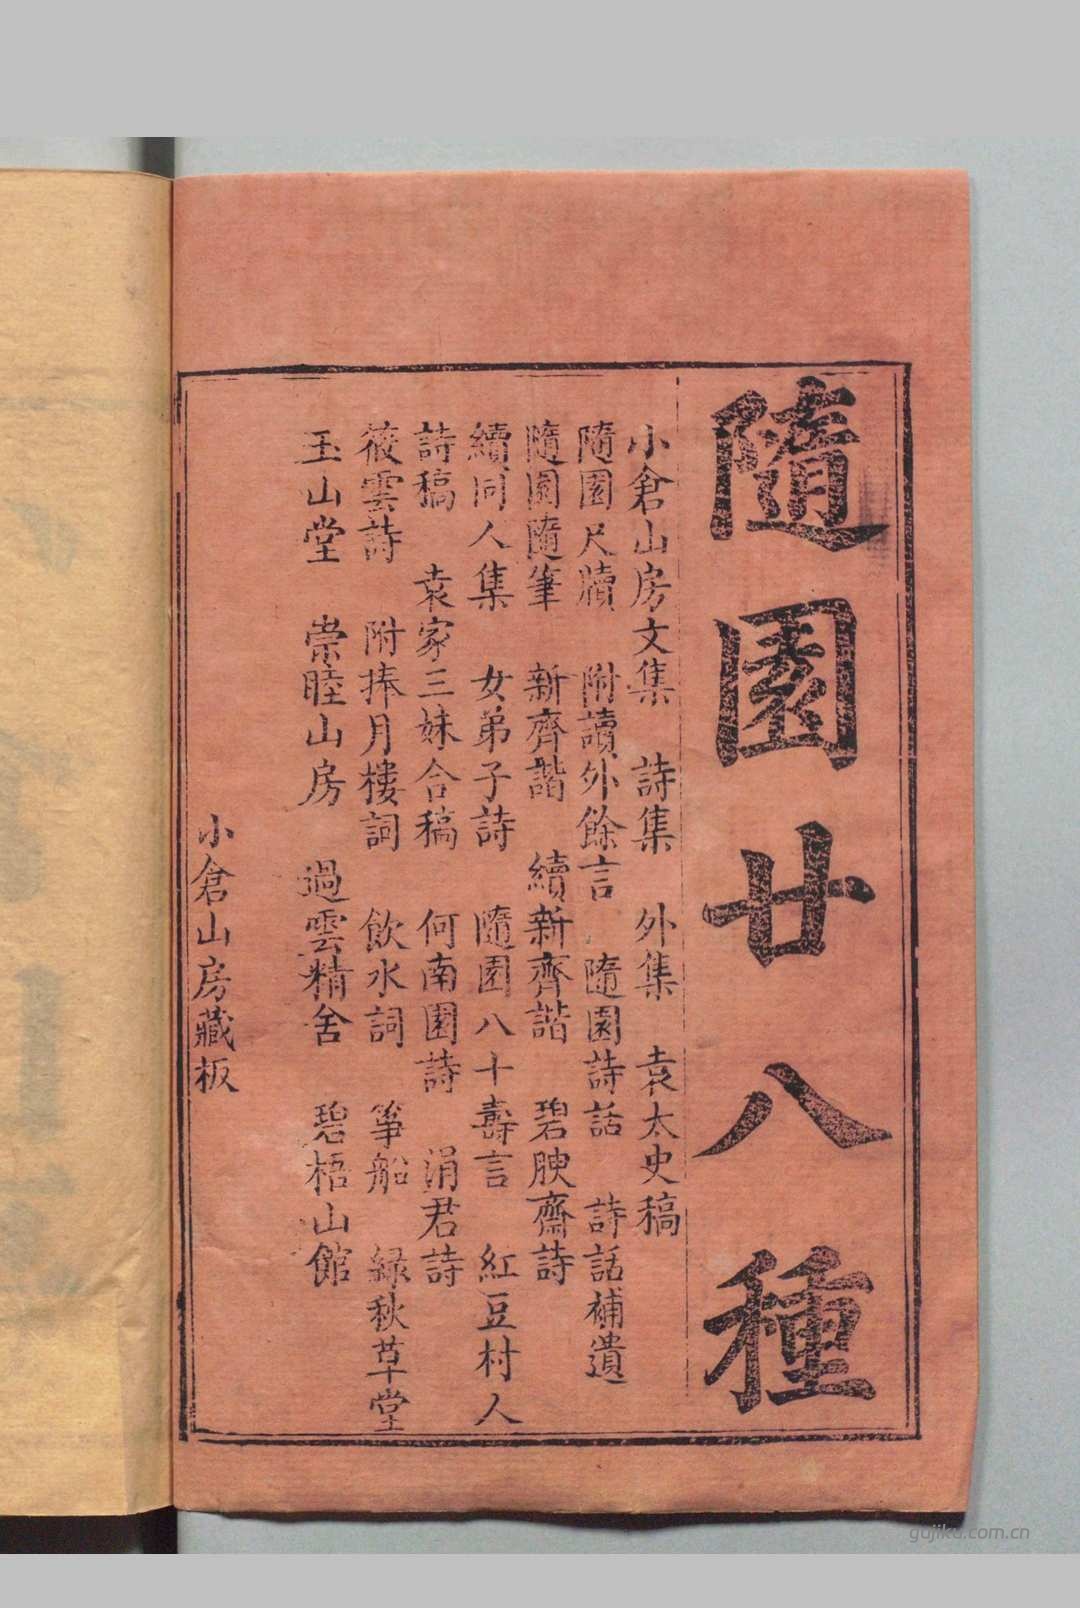 隨園廿八種
小倉山房文集　詩集　外集　袁太史稿
隨園尺牘　附讀外餘言　隨園詩話　詩話補遺
隨園隨筆　新齊諧　續新齊諧　碧腴齋詩
續同人集　女弟子詩　隨園八十壽言　紅豆村人
詩稿　袁家三妹合稿　何南園詩　涓君詩
筱雲詩　附捧月樓詞　飲水詞　箏船　綠秋草堂
玉山堂　崇睦山房　過雲精舍　碧梧山館
小倉山房藏板
gujiku.com.cn